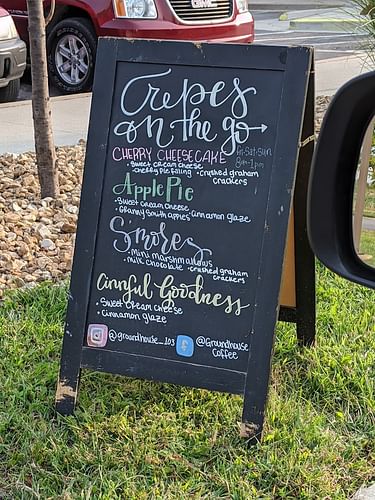 Crepes
on the go
CHERRY CHEESECAKE
Fri-Sat-Sun
8am-1pm
• Sweet cream cheese
• cherry pie filling • crushed graham crackers
Apple Pie
• Sweet cream cheese
• Granny Smith apples • Cinnamon glaze
Smores
• Mini marshmallows
• milk chocolate • crushed graham crackers
Cinnful Goodness
• Sweet cream cheese
• Cinnamon glaze
@groundhouse_103
@Groundhouse
Coffee
GMC